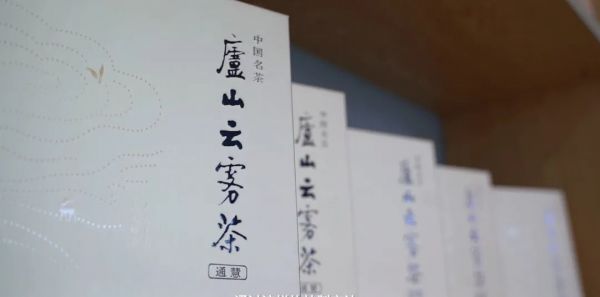 中国名茶
廬山云雾茶
通慧
中国名茶
廬山云雾茶
通慧